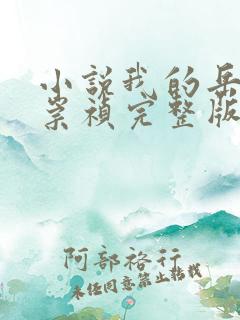 小说我的岳
崇祯完整版
阿部裕行
未经同意禁止转载